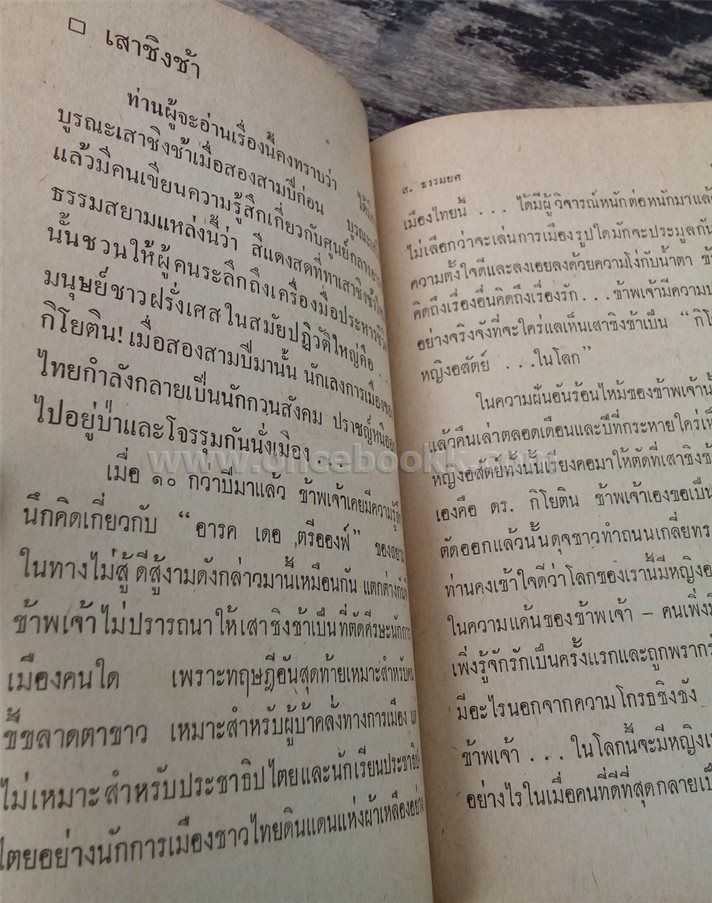 □ เสาชิงช้า
ท่านผู้จะอ่านเรื่องนี้คงทราบว่า
บูรณะเสาชิงช้าเมื่อสองสามปีก่อน
แล้วมีคนเขียนความรู้สึกเกี่ยวกับศูนย์กลาง
ธรรมสยามแหล่งนี้ว่า สีแดงสดที่ทาเสาชิงช้า
นั้นชวนให้ผู้คนระลึกถึงเครื่องมือประหาร
มนุษย์ชาวฝรั่งเศสในสมัยปฏิวัติใหญ่คือ . . .
กิโยติน! เมื่อสองสามปีมานั้น นักเลงการเมือง
ไทยกำลังกลายเป็นนักกวนสังคม ปราชญ์หนี
ไปอยู่ป่าและโจรรุมกันนั่งเมือง . . .
เมื่อ ๑๐ กว่าปีมาแล้ว ข้าพเจ้าเคยมีความรู้สึก
นึกคิดเกี่ยวกับ “อารค เดอ ตรีออง‌ฟ์” ของสยาม
ในทางไม่สู้ดีสู้งามดังกล่าวมานี้เหมือนกัน แตกต่างกัน
ข้าพเจ้าไม่ปรารถนาให้เสาชิงช้าเป็นที่ตัดศีรษะนักการ
เมืองคนใด เพราะทฤษฎีอันสุดท้ายเหมาะสำหรับ
ขี้ขลาดตาขาว เหมาะสำหรับผู้บ้าคลั่งทางการเมือง
ไม่เหมาะสำหรับประชาธิปไตยและนักเรียนประชาธิป
ไตยอย่างนักการเมืองชาวไทยดินแดนแห่งผ้าเหลืองอย่าง
ส. ธรรมยศ
เมืองไทยนี้ . . . ได้มีผู้วิจารณ์หนักต่อหนักมาแล้ว
ไม่เลือกว่าจะเล่นการเมืองรูปใดมักจะประมูลกัน
ความตั้งใจดีและลงเอยลงด้วยความโง่กับน้ำตา
คิดถึงเรื่องอื่นคิดถึงเรื่องรัก . . . ข้าพเจ้ามีความ
อย่างจริงจังที่จะใคร่แลเห็นเสาชิงช้าเป็น
หญิงอสัตย์ . . . ในโลก”
ในความฝันอันร้อนไหม้ของข้าพเจ้านั้น
แล้วคืนเล่าตลอดเดือนและปีที่กระหายใคร่
หญิงอสัตย์ทั้งนั้นเรียงคอมาให้ตัดที่เสาชิงช้า
เองคือ ดร. กิโยติน ข้าพเจ้าเองขอเป็น
ตัดออกแล้วนั้นดุจชาวทำถนนเกลี่ยทราย
ท่านคงเข้าใจดีว่าโลกของเรานี้มีหญิง
ในความแค้นของข้าพเจ้า – คนเพิ่ง
เพิ่งรู้จักรักเป็นครั้งแรกและถูกพราก
มีอะไรนอกจากความโกรธชิงชัง
ข้าพเจ้า . . . ในโลกนี้จะมีหญิง
อย่างไรในเมื่อคนที่ดีที่สุดกลายเป็น
www.oncebookk.com